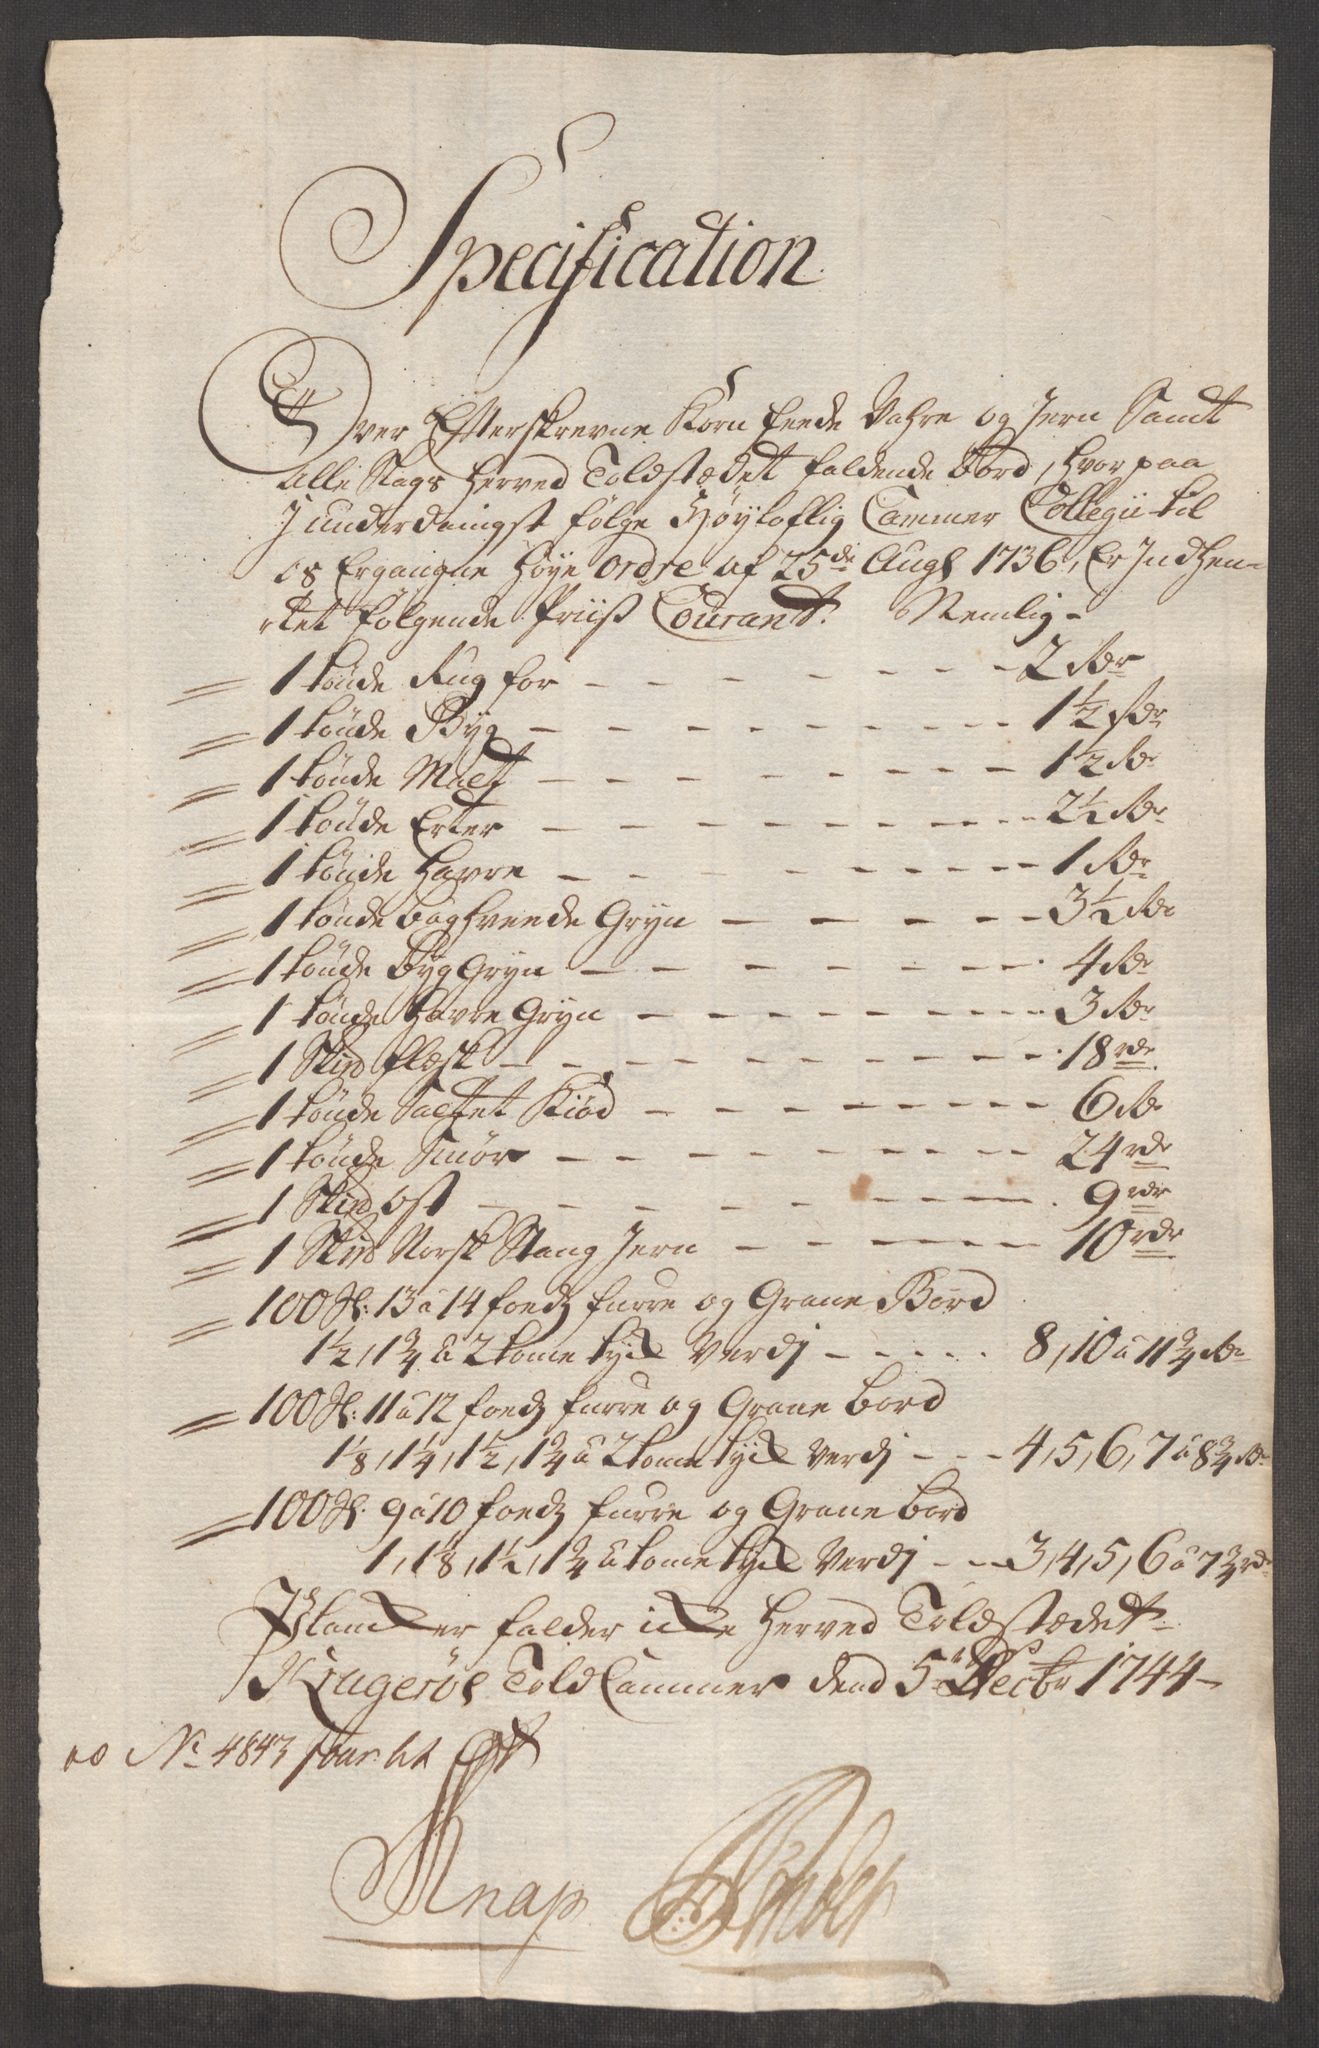 Specification
Over Efterskrevne Korn feede Vahre og Jern Samt
Alle Slags herved Toldstædet faldende bord, hvorpaa
I underdanigst følge Høyloflig Cammer Collegii til
os Ergangne høye ordre af 25de Augs 1736, Er Indhen-
tet følgende Priiss Courant. Nemlig -
1 tønde Rug for - - - - - - - 2 Rdr
1 tønde Byg - - - - - - - 1½ Rdr
1 tønde Malt - - - - - - - 1½ Rdr
1 tønde Erter - - - - - - - 2½ Rdr
1 tønde Havre - - - - - - - 1 Rdr
1 tønde boghveede Gryn - - - - - 3½ Rdr
1 tønde byg Gryn - - - - - - - 4 Rdr
1 tønde Havre Gryn - - - - - - - 3 Rdr
1 Sk℔ flæsk - - - - - - - 18 rdr
1 tønde Saltet Kiød - - - - - - - 6 Rdr
1 tønde Smør - - - - - - - 24 rdr
1 Sk℔ ost - - - - - - - 9 rdr
1 Sk℔ Norsk Stang Jern - - - - - 10 rdr
100 St: 13 a 14 foeds furre og Grane Bord
1½, 1¾ a 2 tome tyck Verdj - - - - - 8, 10 a 11¾ Rdr
100 St: 11 a 12 foeds furre og Grane bord
1⅛, 1¼, 1½, 1¾ a 2 tome tyck Verdj - - - 4, 5, 6, 7 a 8¾ Rdr
100 St: 9 a 10 foeds furre og Grane bord
1, 1⅛, 1½, 1¾ a tome tyck Verdj - - - 3, 4, 5, 6 a 7¾ rdr
Plancker falder icke herved Toldstædet
Kragerøe Told Cammer dend 5te Decbr 1744
No 4843
Knap